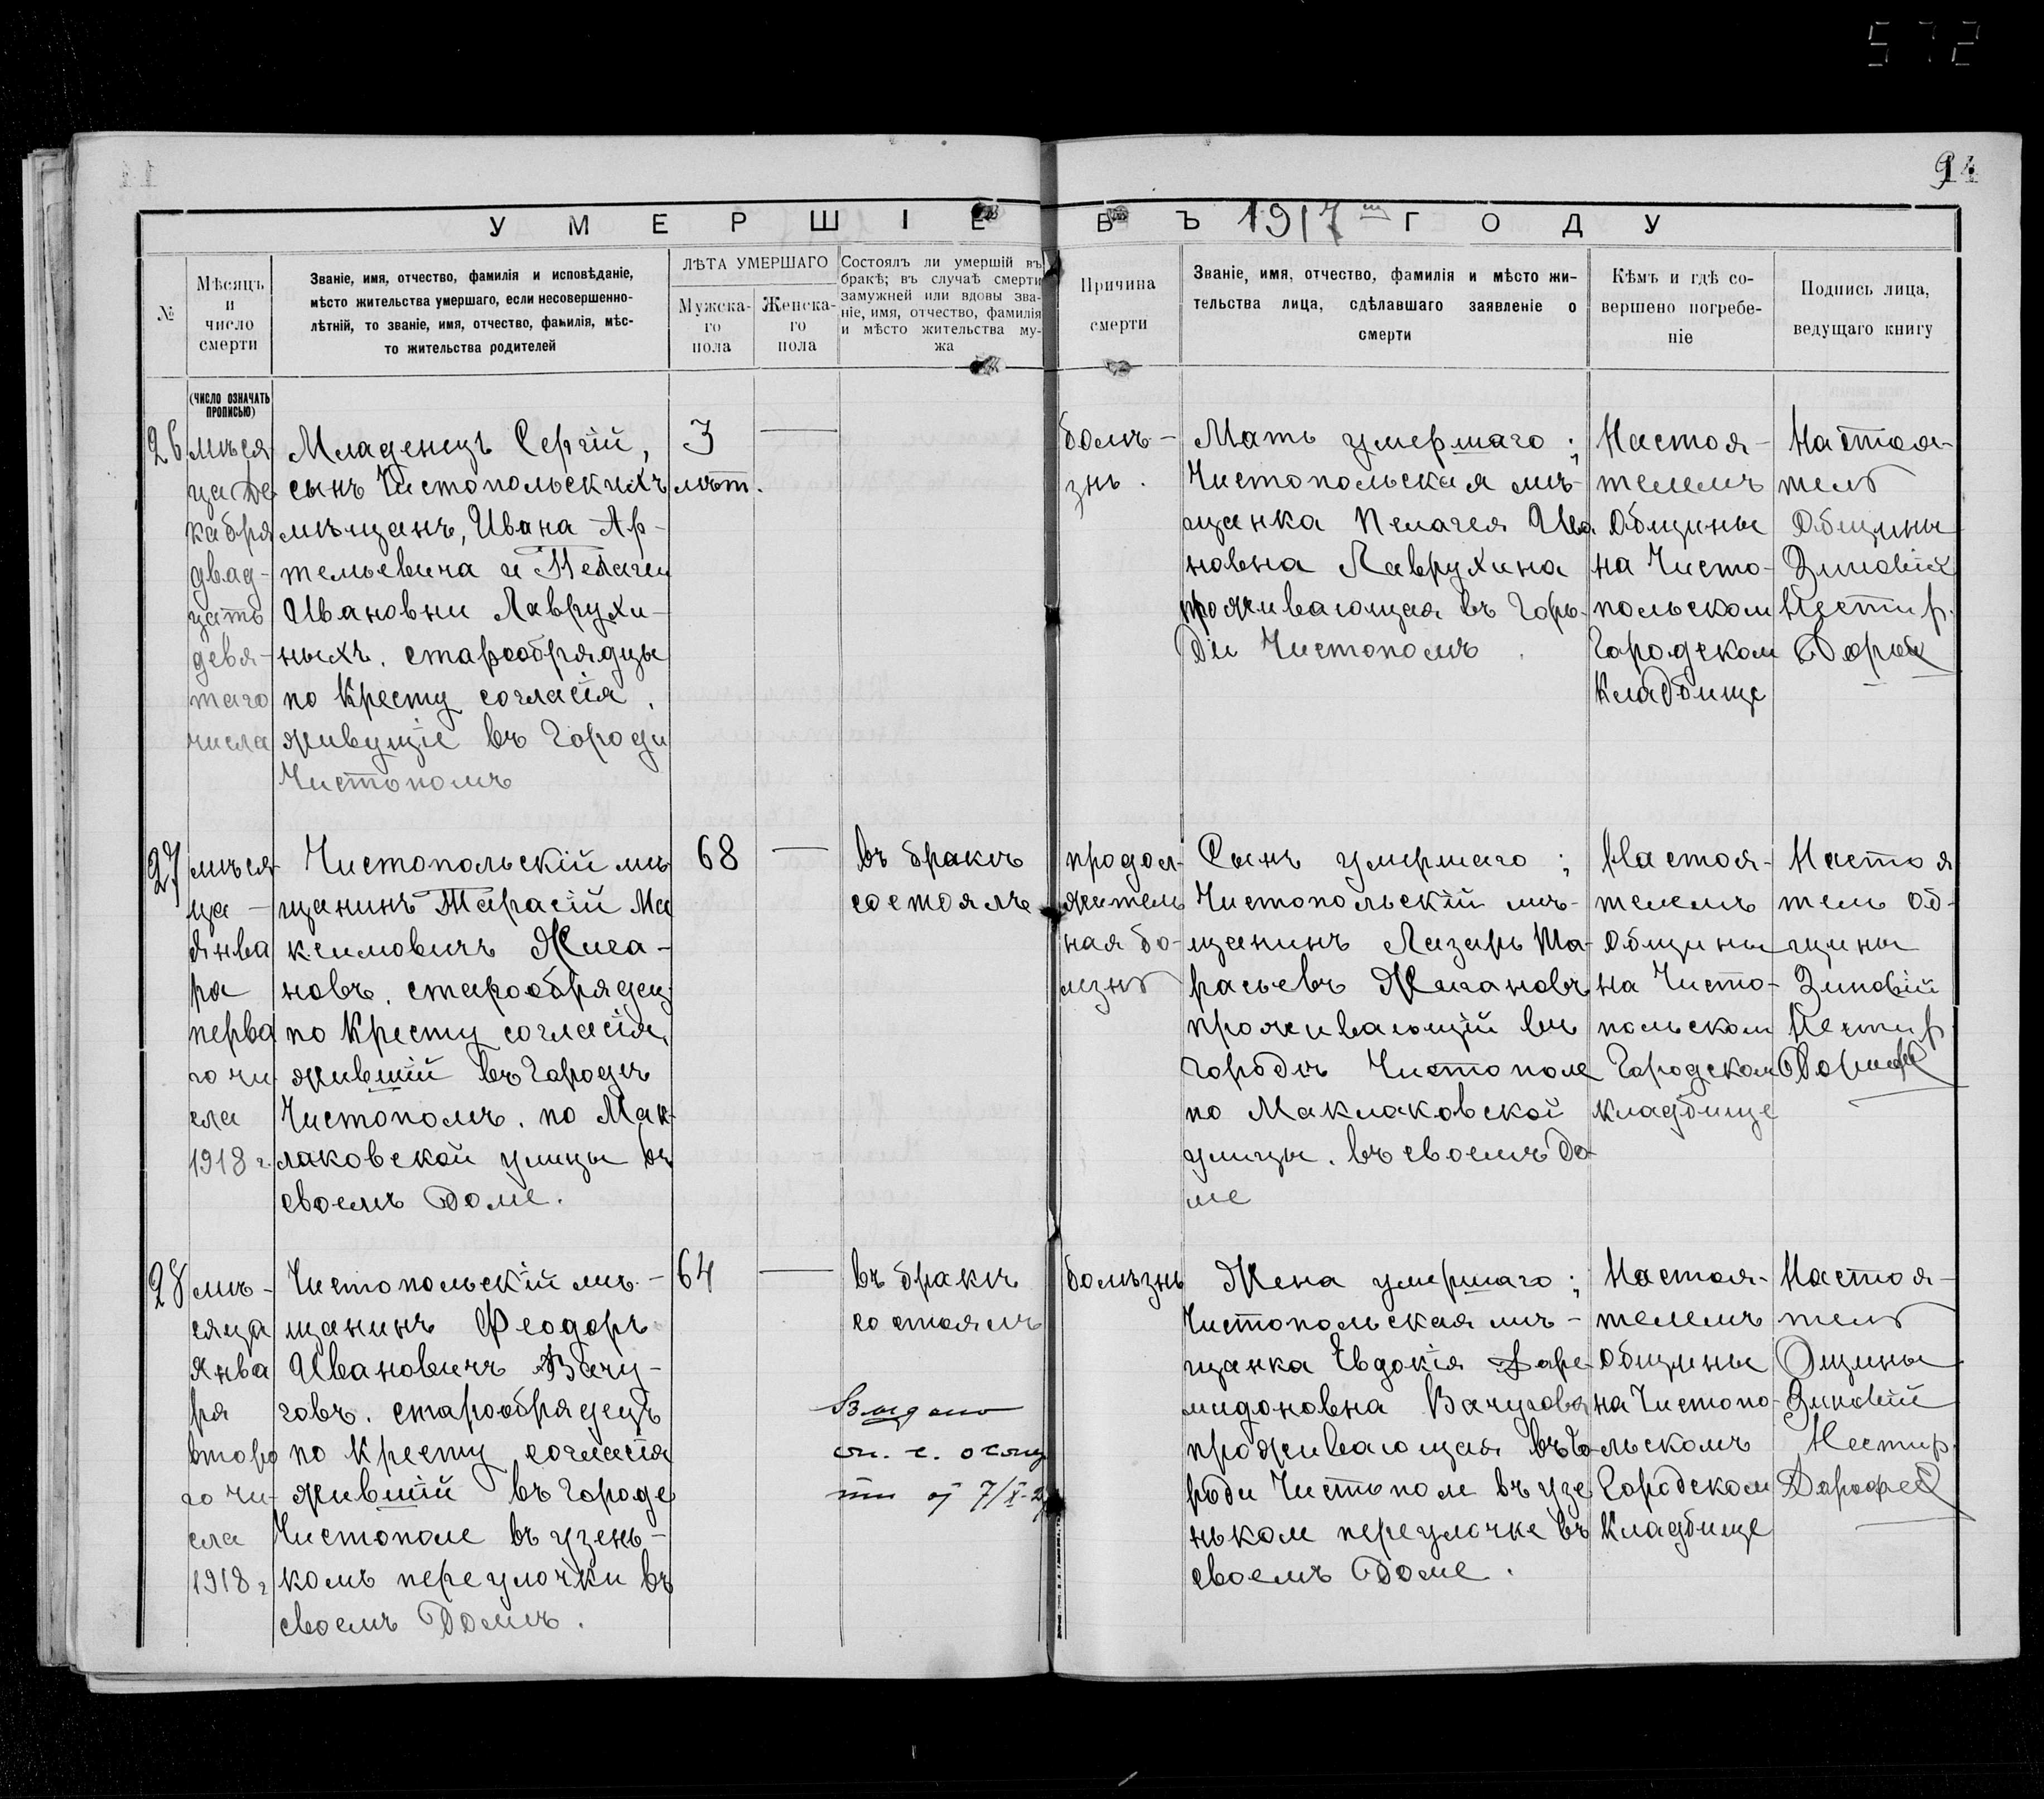 572
94
УМЕРШІЕ ВЪ 1917 ГОДУ
№
Мѣсяцъ
и
число
смерти
Званіе, имя, отчество, фамилія и исповѣданіе,
мѣсто жительства умершаго, если несовершенно-
лѣтній, то званіе, имя, отчество, фамилія, мѣс-
то жительства родителей
ЛѢТА УМЕРШАГО
Мужска-
го
пола
Женска-
го
пола
Состоялъ ли умершій въ
бракѣ; въ случаѣ смерти
замужней или вдовы зва-
ніе, имя, отчество, фамилія
и мѣсто жительства му-
жа
Причина
смерти
Званіе, имя, отчество, фамилія и мѣсто жи-
тельства лица, сдѣлавшаго заявленіе о
смерти
Кѣмъ и гдѣ со-
вершено погребе-
ніе
Подпись лица,
ведущаго книгу
(ЧИСЛО ОЗНАЧАТЬ
ПРОПИСЬЮ)
26
мѣся
ца де
кабря
двад-
цать
девя-
таго
числа
Младенецъ Сергій,
сынъ Чистопольскихъ
мѣщанъ, Ивана Ар-
темьевича и Пелагеи
Ивановни Лаврухи-
ныхъ. старообрядцы
по Кресту согласія,
живущіе въ Городи
Чистополѣ
3
лѣт.
болѣ-
знь.
Мать умершаго;
Чистопольская мѣ-
щанка Пелагея Ива
новна Лаврухина
проживающая въ Горо-
ди Чистополѣ.
Настоя-
телемъ
Общины
на Чисто-
польском
Городском
Кладбище
Настоя-
тель
Общины
Зиновій
Нестир.
Дороф
27
мѣся-
ца
Янва
ра
перва
го чи
сла
1918 г.
Чистопольскій мѣ
щанинъ Тарасій Ма
ксимовичъ Жига-
новъ, старообрядец
по Кресту согласія,
живший въ Городѣ
Чистополѣ. по Мак-
лаковской улицы въ
своемъ доме.
68
въ бракѣ
состоялъ
продол-
житель
ная бо-
лезнь
Сынъ умершаго;
Чистопольскій мѣ-
щанинъ Лазарь Та-
расьевъ Жигановъ
проживающій въ
городѣ Чистополе
по Маклаковской
улицы. въ своемъ до-
ме
Настоя-
телемъ
Общины
на Чисто-
польском
Городском
кладбище
Настоя
тель Об-
щины
Зиновій
Нестир
Дороф
28
мѣ-
сяца
Янва
ря
второ
го чи-
сла
1918 г
Чистопольскій мѣ-
щанинъ Феодоръ
Ивановичъ Вачу-
говъ. старообрядецъ
по Кресту согласія
живший въ Городе
Чистополе въ узень-
комъ переулочки въ
своемъ Домѣ.
64
въ бракѣ
состоялъ
7/X-2
болѣзнь
Жена умершаго;
Чистопольская мѣ-
щанка Евдокія Фаре-
мидоновна Вачугова
проживающая въ Го-
роди Чистополи въ узе
ньком переулочке въ
своемъ доме.
Настоя-
телемъ
Общины
на Чистопо-
льскомъ
Городском
Кладбище
Настоя-
тель
Ощины
Зиновій
Нестир.
Дорофей